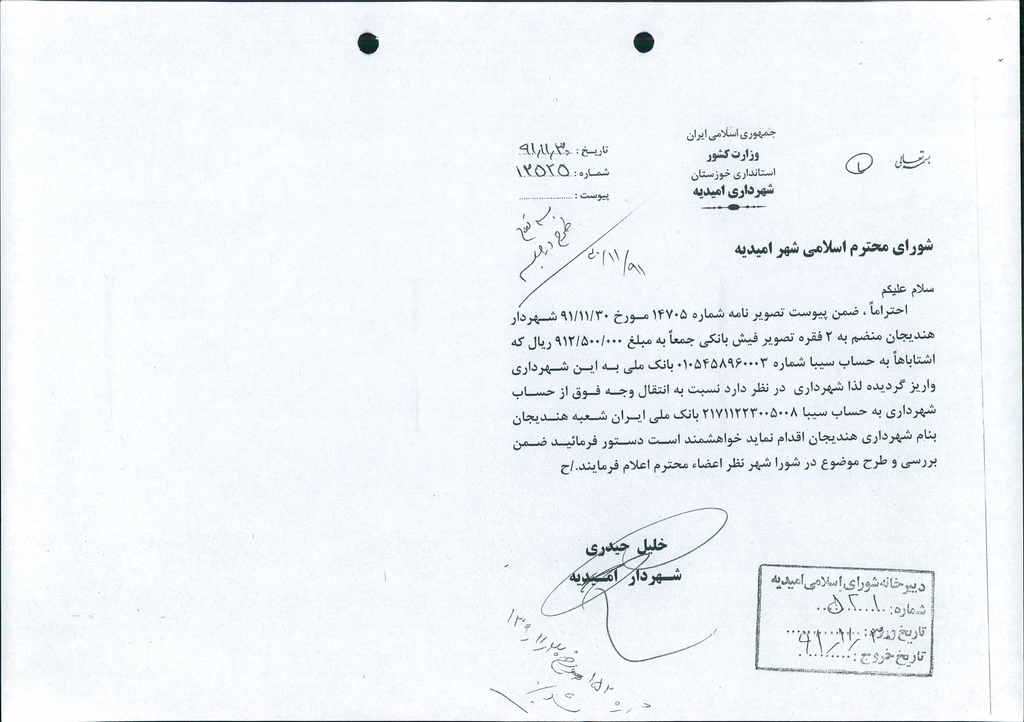 بسمه تعالی
جمهوری اسلامی ایران
وزارت کشور
استانداری خوزستان
شهرداری امیدیه
تاریخ : ۹۱/۱۱/۳۰
شماره : ۱۳۵۲۵
پیوست : ....................
طرح در جلسه
۹۱/۱۱/۳۰
شورای محترم اسلامی شهر امیدیه
سلام علیکم
احتراماً ، ضمن پیوست تصویر نامه شماره ۱۴۷۰۵ مورخ ۹۱/۱۱/۳۰ شهردار
هندیجان منضم به ۲ فقره تصویر فیش بانکی جمعاً به مبلغ ۹۱۲/۵۰۰/۰۰۰ ریال که
اشتاباهاً به حساب سیبا شماره ۰۱۰۵۴۵۸۹۶۰۰۰۳ بانک ملی به این شهرداری
واریز گردیده لذا شهرداری در نظر دارد نسبت به انتقال وجه فوق از حساب
شهرداری به حساب سیبا ۲۱۷۱۱۲۲۳۰۰۵۰۰۸ بانک ملی ایران شعبه هندیجان
بنام شهرداری هندیجان اقدام نماید خواهشمند است دستور فرمائید ضمن
بررسی و طرح موضوع در شورا شهر نظر اعضاء محترم اعلام فرمایند./ح
خلیل حیدری
شهردار امیدیه
دبیرخانه شورای اسلامی امیدیه
شماره:
تاریخ ورود:
تاریخ خروج: